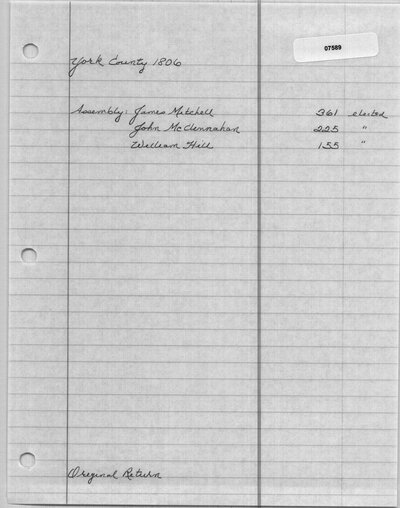 07589
York County 1806
Assembly: James Mitchell 361 elected
John McClennahan 225 "
William Hill 155 "
Original Return